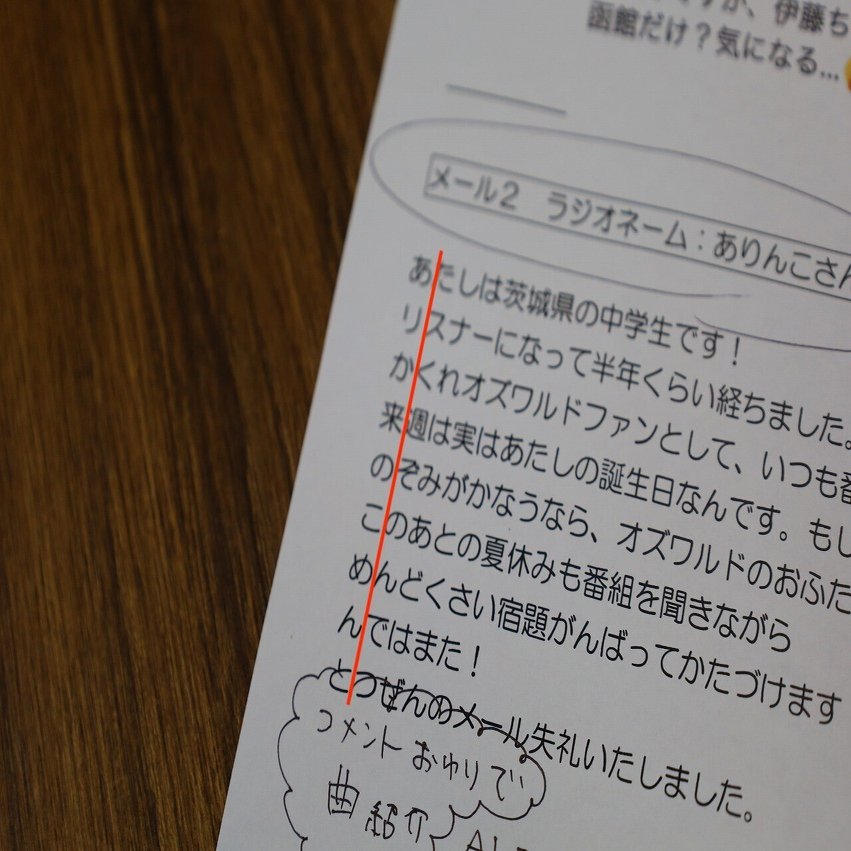 が、伊藤ち
函館だけ？気になる…
メール２　ラジオネーム：ありんこさん
あたしは茨城県の中学生です！
リスナーになって半年くらい経ちました。
かくれオズワルドファンとして、いつも番
来週は実はあたしの誕生日なんです。もし
のぞみがかなうなら、オズワルドのおふた
このあとの夏休みも番組を聞きながら
めんどくさい宿題がんばってかたづけます
んではまた！
とつぜんのメール失礼いたしました。
コメントおゆりで
曲紹介